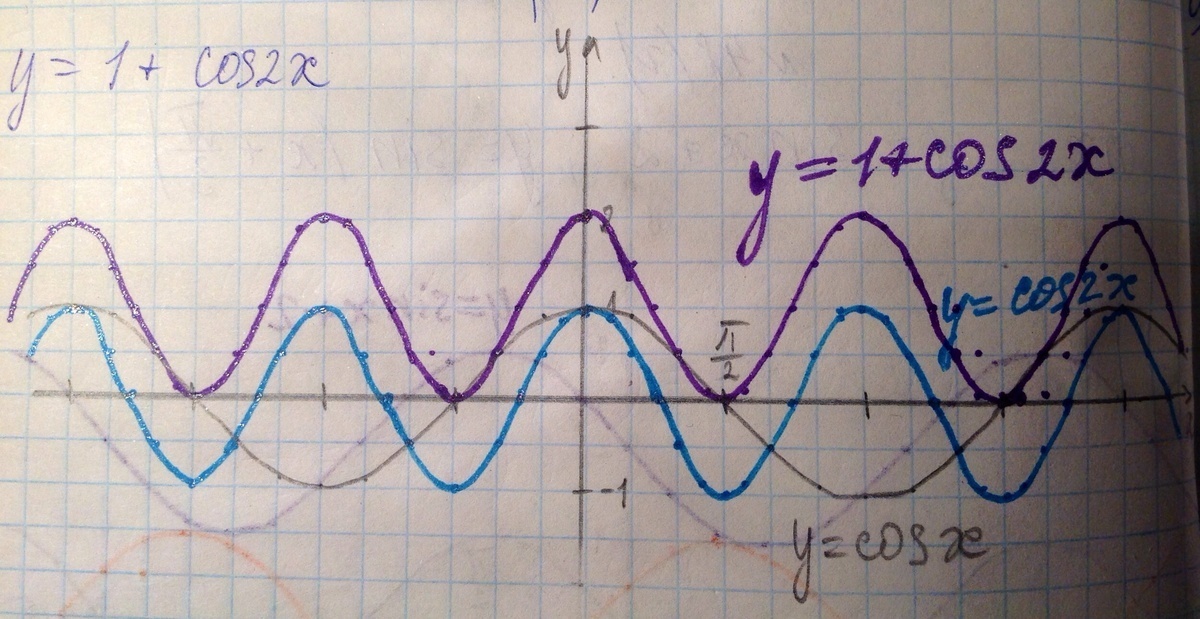 y = 1 + cos2x
y
y = 1 + cos 2x
2
y = cos 2x
1
π/2
-1
y = cos x